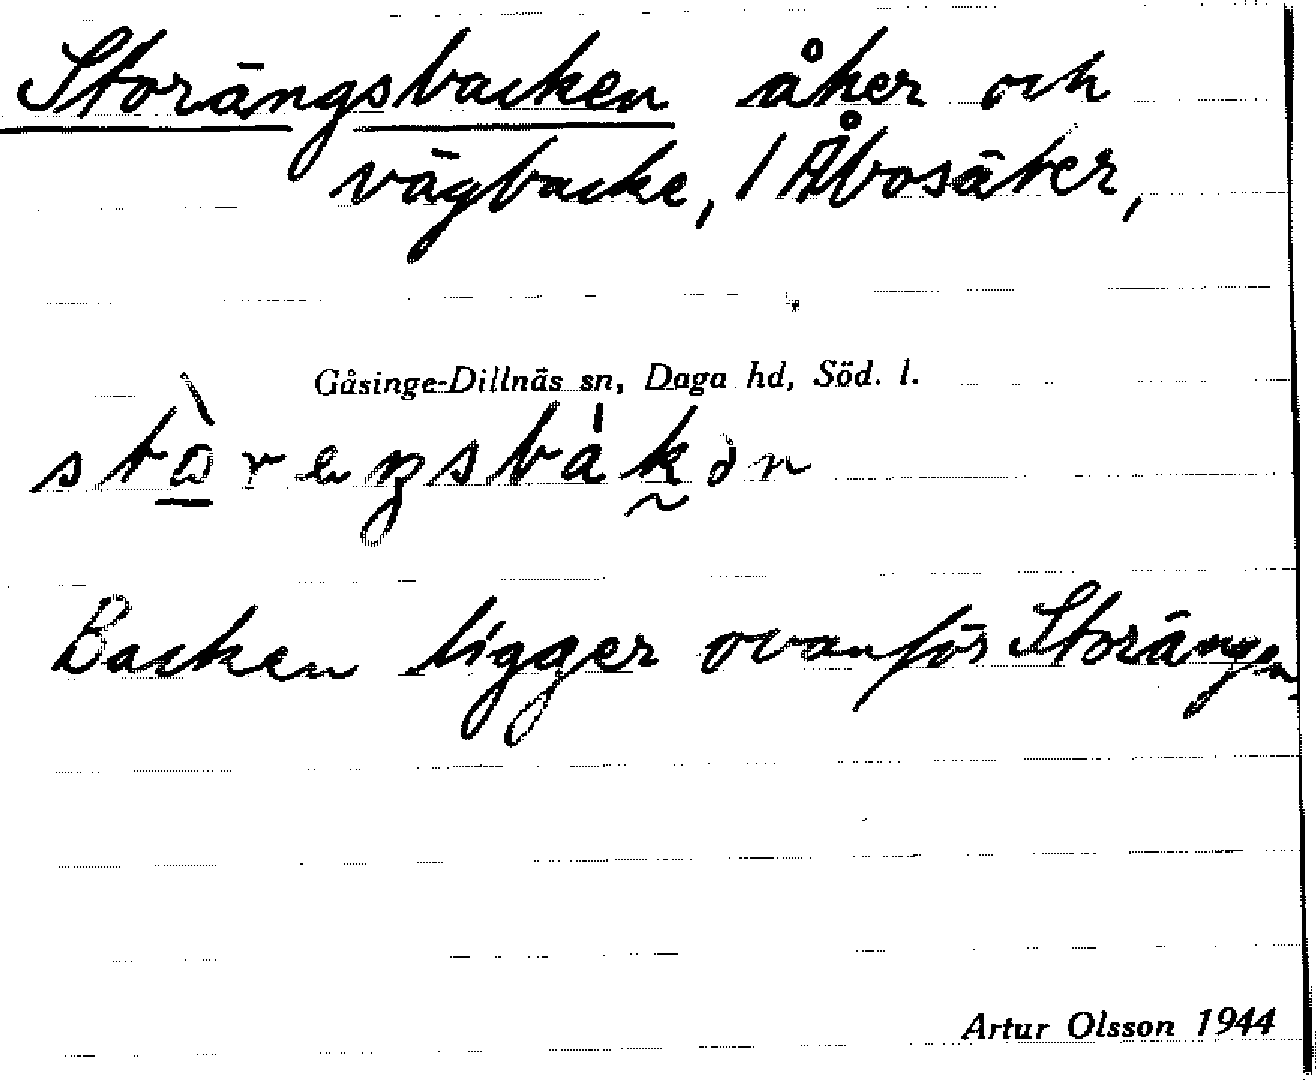 Storängsbacken åker och
vägbacke, / Åbosäter,
Gåsinge-Dillnäs sn, Daga hd, Söd. l.
Backen ligger ovanför Storängen
Artur Olsson 1944